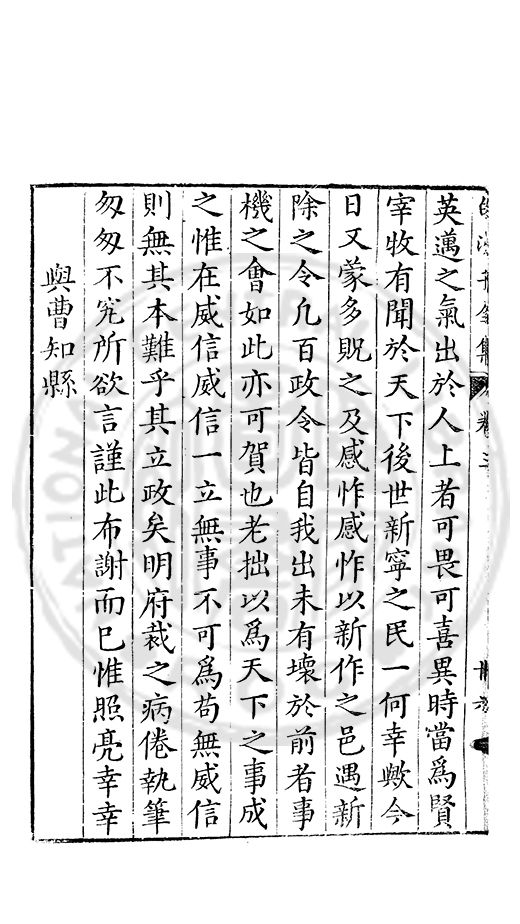 英邁之氣出於人上者可畏可喜異時當為賢
宰收有聞於天下後世新寧之民一何幸歟今
日又蒙多貺之及感怍感怍以新作之邑遇新
除之令凢百政令皆自我出未有壞於前者事
機之會如此亦可賀也老拙以為天下之事成
之惟在威信威信一立無事不可為茍無威信
則無其本難乎其立政矣明府裁之病倦執筆
匆匆不究所欲言謹此布謝而巳惟照亮幸幸
與曹知縣